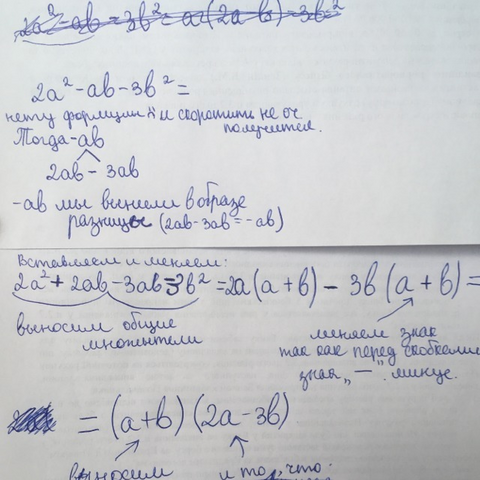 2a² - ab - 3b² = a(2a - b) - 3b²
2a² - ab - 3b² =
нету формции и скоротить не оч
получится.
Тогда -ab
2ab - 3ab
-ab мы вынели в образе
разницы (2ab - 3ab = -ab)
Вставляем и меняем:
2a² + 2ab - 3ab - 3b² = 2a(a + b) - 3b(a + b) =
выносим общие
множители
меняем знак
так как перед скобками
знак „—" минус.
= (a+b)(2a - 3b)
выносим и то, что: